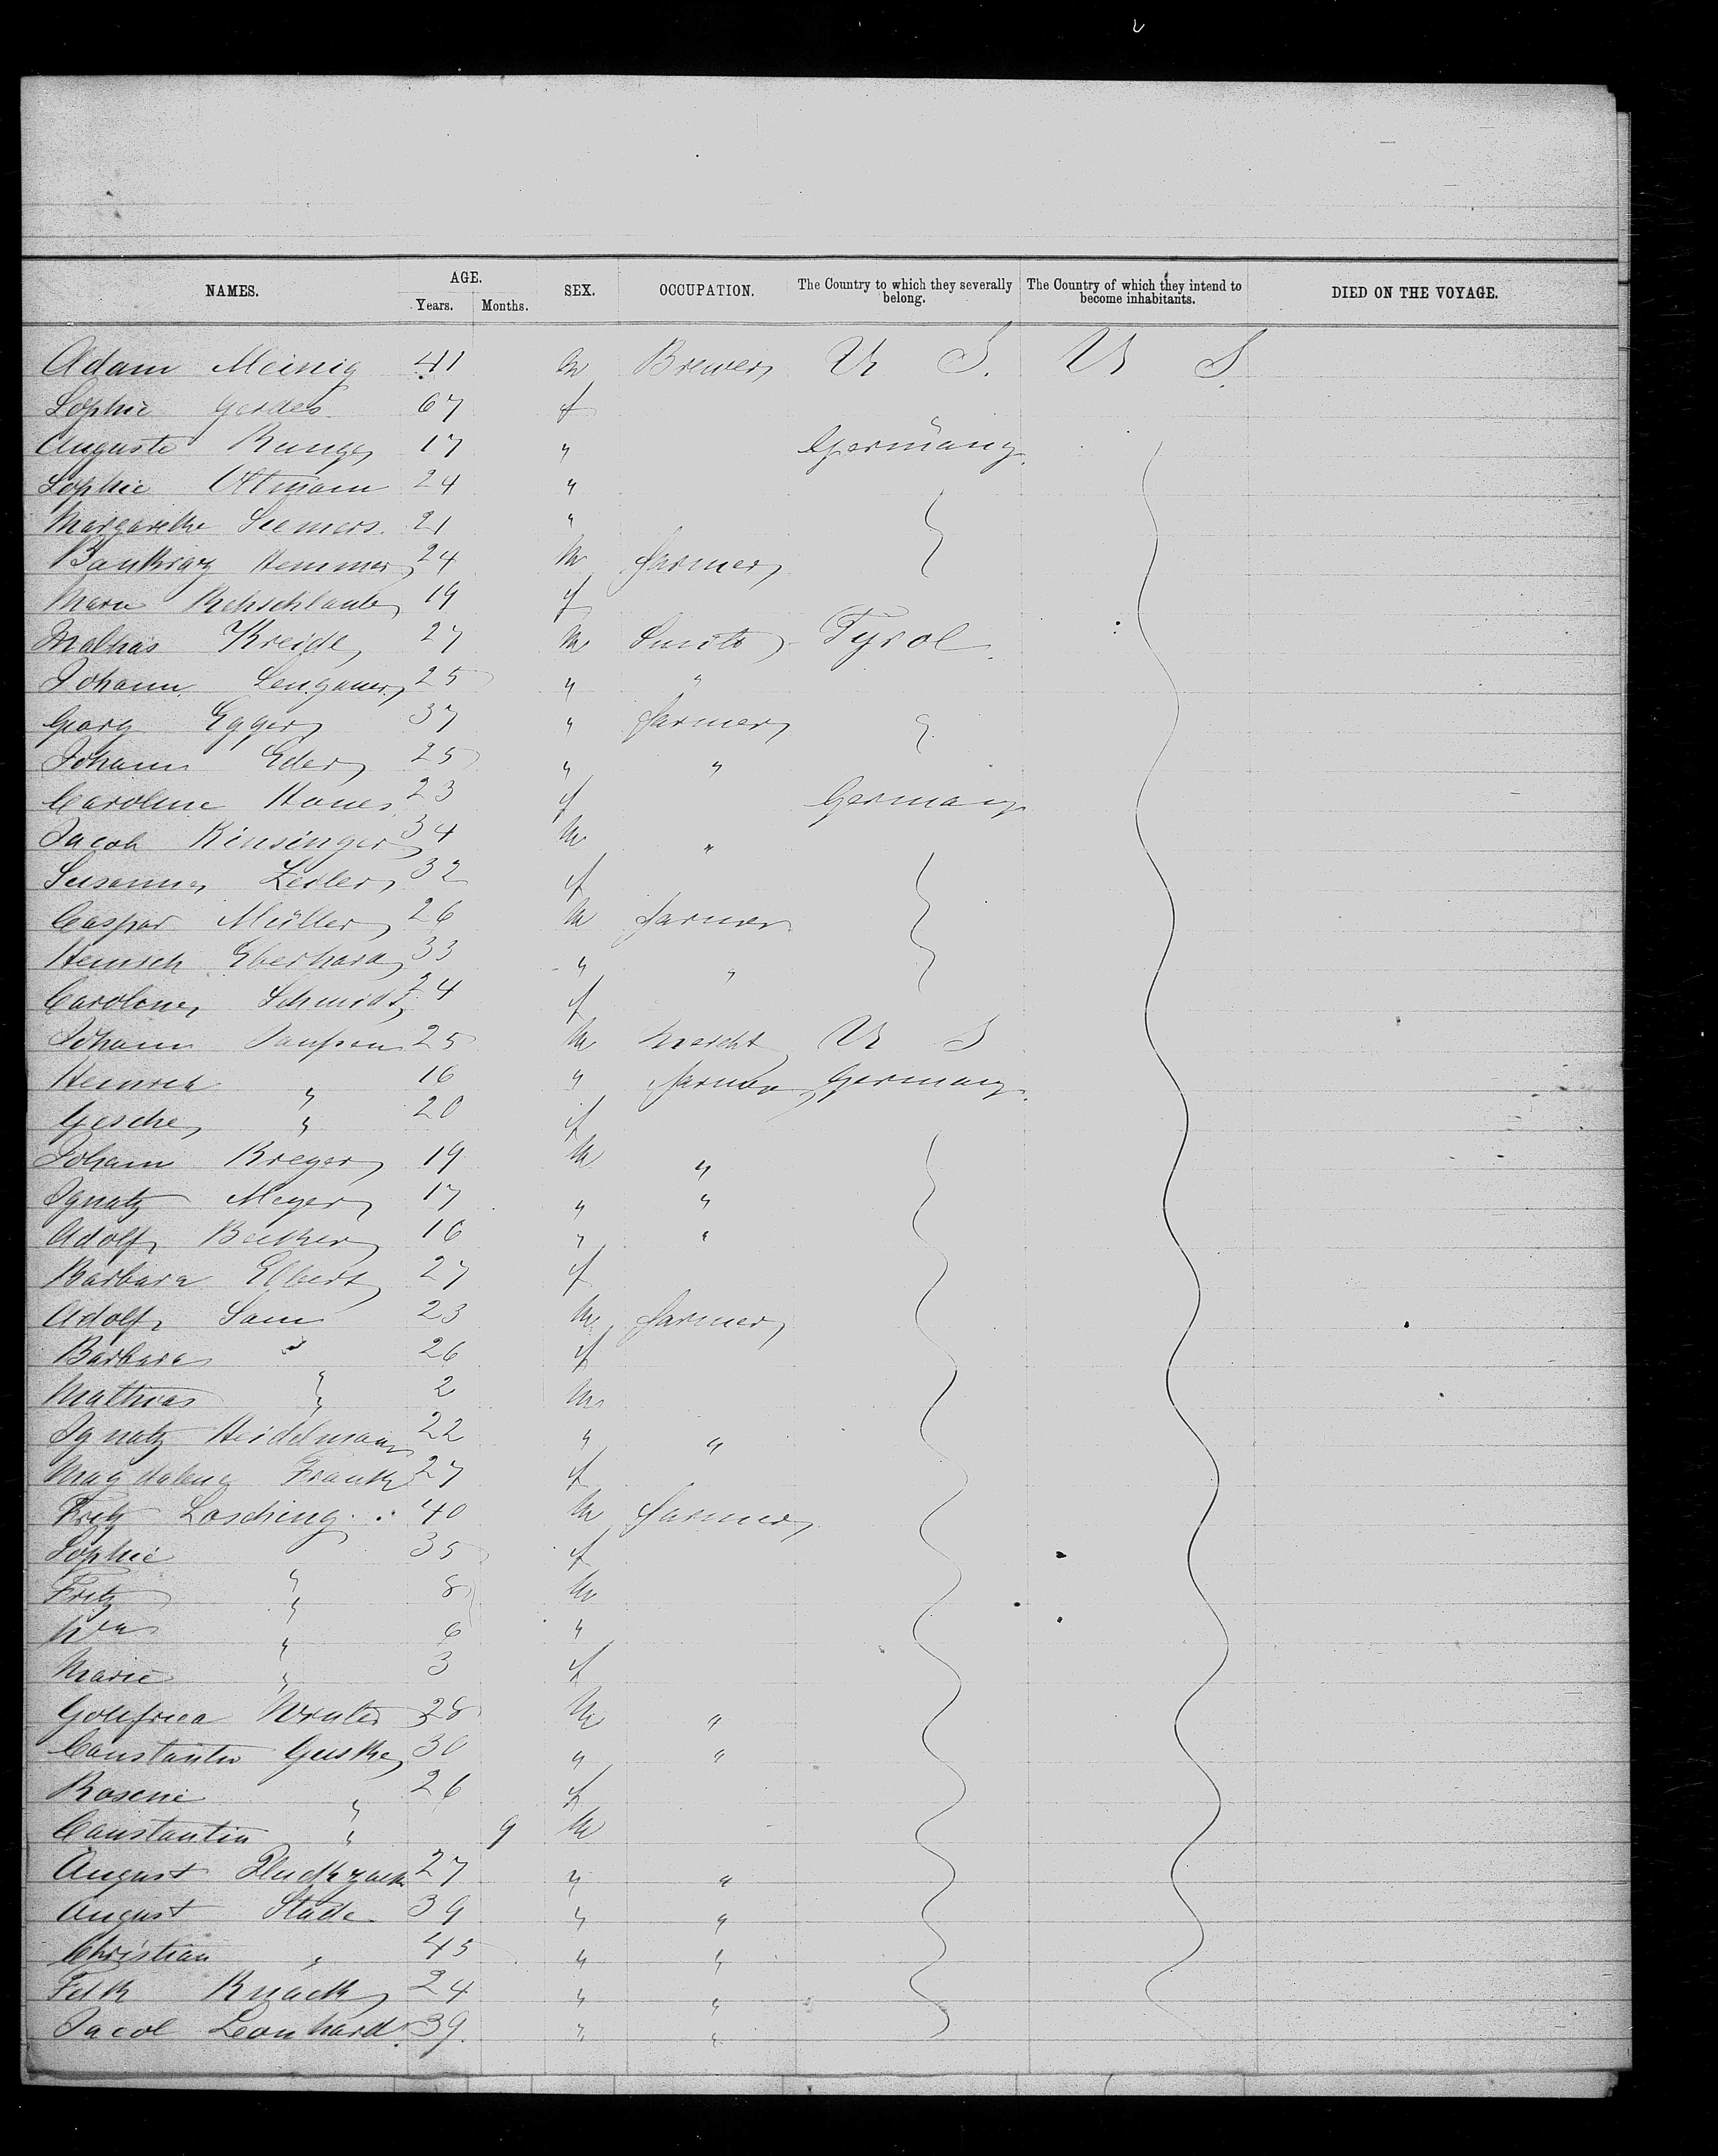 NAMES. AGE. Years. Months. SEX. OCCUPATION. The Country to which they severally belong. The Country of which they intend to become inhabitants. DIED ON THE VOYAGE.
Adam Meinig 41 m Brewer U S. U S.
Sophie Gerdes 67 f
Auguste Runge 17 " Germany
Sophie Oltmann 24 "
Margarethe Siemers 21 "
Bankraz Hemmer 24 m farmer
Marie Rehschlaub 19 f
Mathias Kreidl 27 m Smith Tyrol
Johann Lengauer 25 " "
Georg Egger 37 " farmer
Johann Eder 25 " "
Caroline Hones 23 f Germany
Jacob Kinsinger 34 m "
Susanna Zeiler 32 f
Caspar Müller 26 m farmer
Heinrich Eberhard 33 " "
Caroline Schmidt 24 f
Johann 25 m U S
Heinrich " 16 " farmer Germany
Gesche " 20 f
Johann Kreyer 19 m "
Ignatz Meyer 17 " "
Adolf Becker 16 " "
Barbara Elbert 27 f
Adolf Sam 23 m farmer
Barbara " 26 f
Mathias " 2 m
Ignatz Heidelmann 22 " "
Magdalena Frank 27 f
Fritz Losching 40 m farmer
Sophie " 35 f
Fritz " 8 m
" 6 "
Marie " 3 f
Gottfried 28 m "
Constantin Guske 30 " "
Rosine " 26 f
Constantin " 9 m
August 27 " "
August Stade 39 " "
Christian " 45 " "
Knack 24 " "
Jacob Leonhard 39 " "